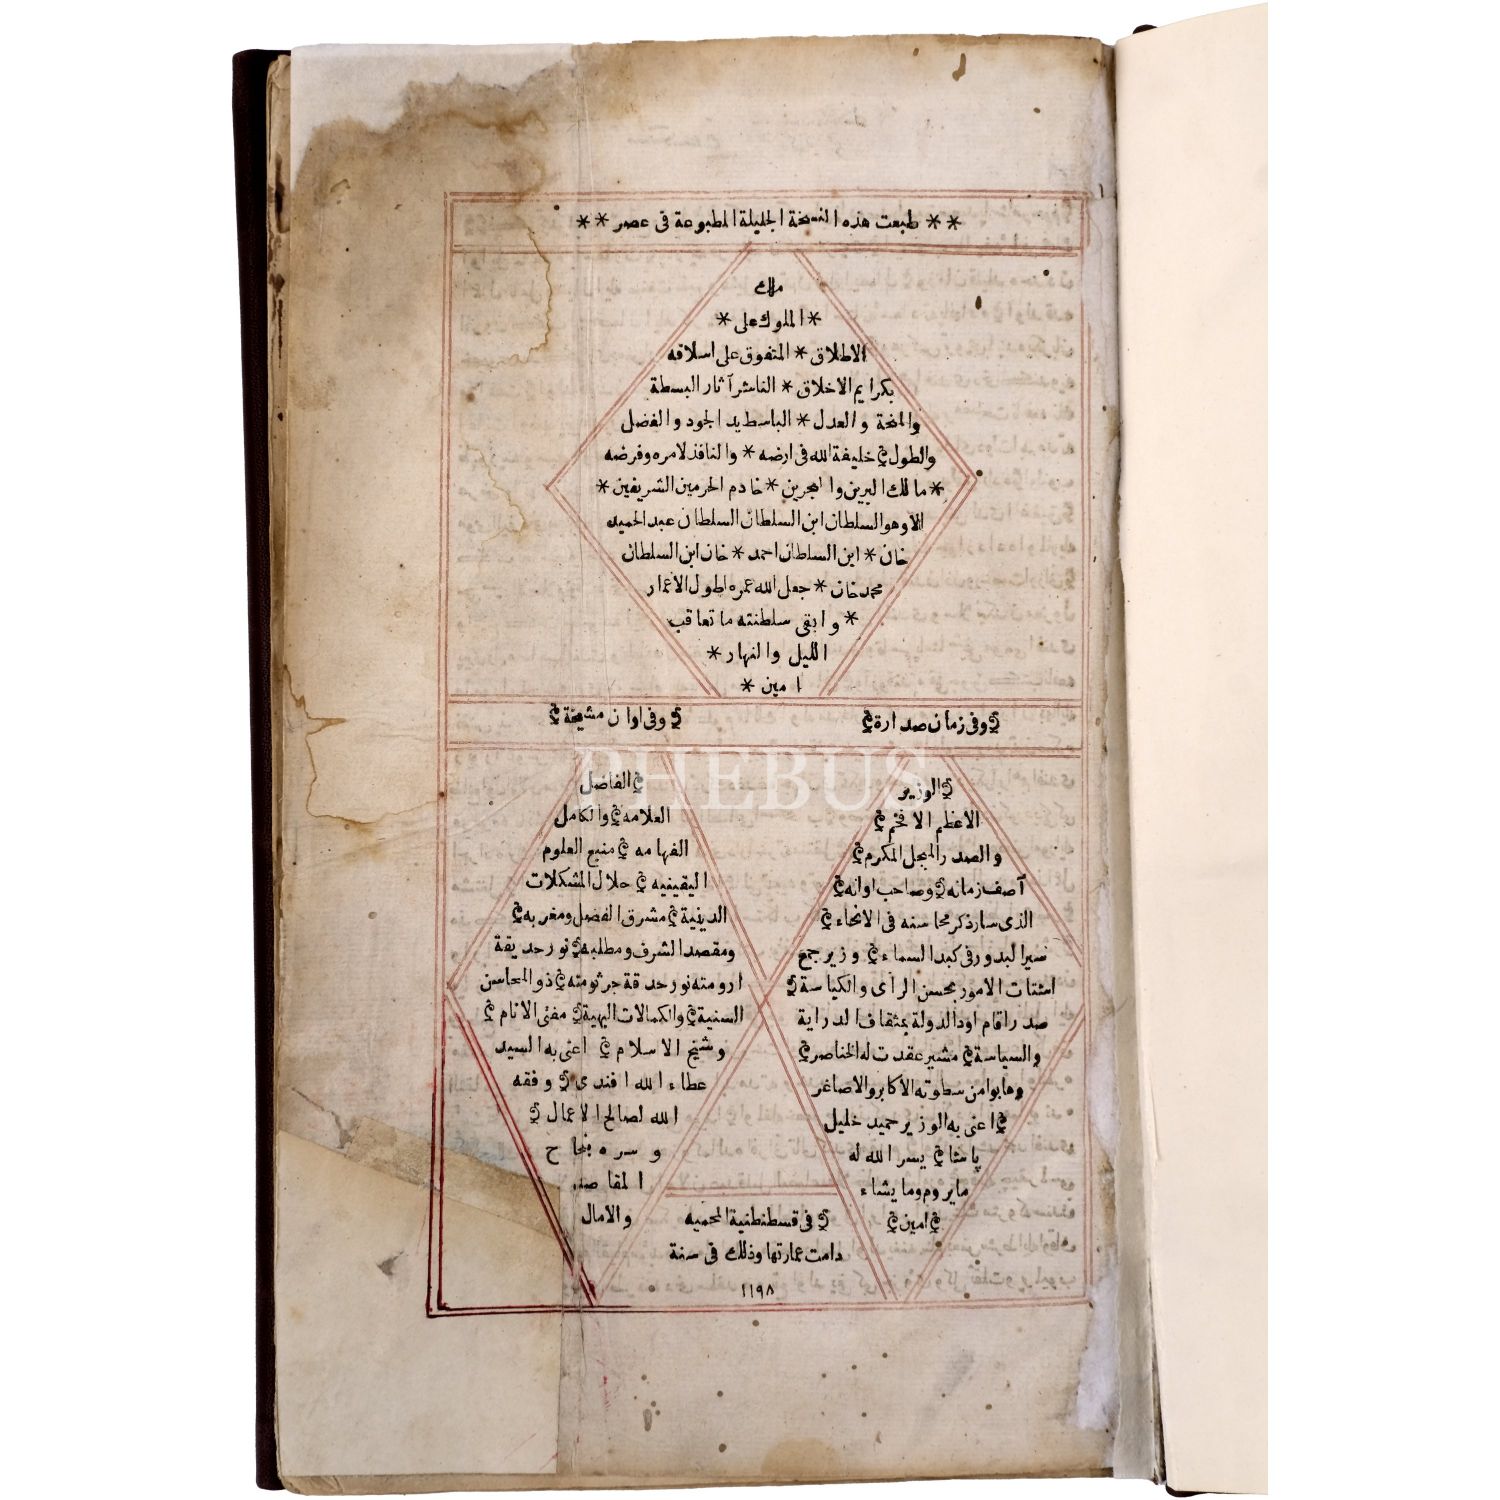 ** طبعت هذه النسخة الجليلة المطبوعة فى عصر **
ملك
* الملوك على *
الاطلاق * المتفوق على اسلافه
بكرايم الاخلاق * الناشر آثار البسطة
والمنحة والعدل * الباسط يد الجود والفضل
والطول خليفة الله فى ارضه * والنافذ لامره وفرضه
* مالك البرين والبحرين * خادم الحرمين الشريفين *
الا وهو السلطان ابن السلطان السلطان عبد الحميد
خان * ابن السلطان احمد * خان ابن السلطان
محمد خان * جعل الله عمره اطول الاعمار
* وابقى سلطنته ما تعاقب
الليل والنهار *
امين *
وفى زمان صدارة
الوزير
الاعظم الافخم
والصدر المبجل المكرم
آصف زمانه وصاحب اوانه
الذى سار ذكر محاسنه فى الانحاء
سير البدور فى كبد السماء وزير جمع
اشتات الامور بحسن الراى والكياسة
صدر اقام اود الدولة بمثقاف الدراية
والسياسة مشير عقدت له الخناصر
وهابوا من سطوته الاكابر والاصاغر
اعنى به الوزير حميد خليل
پاشا يسر الله له
ما يروم وما يشاء
امين
وفى اوان مشيخة
الفاضل
العلامه والكامل
الفهامه منبع العلوم
اليقينيه حلال المشكلات
الدينية مشرق الفضل ومغربه
ومقصد الشرف ومطلبه نور حديقة
ارومته نور حدقة جرثومته ذو المحاسن
السنية والكمالات البهية مفتى الانام
وشيخ الاسلام اعنى به السيد
عطاء الله افندى وفقه
الله لصالح الاعمال
وسره بنجاح
المقاصد
والامال
فى قسطنطنية المحميه
دامت عمارتها وذلك فى سنة
١١٩٨
PHEBUS